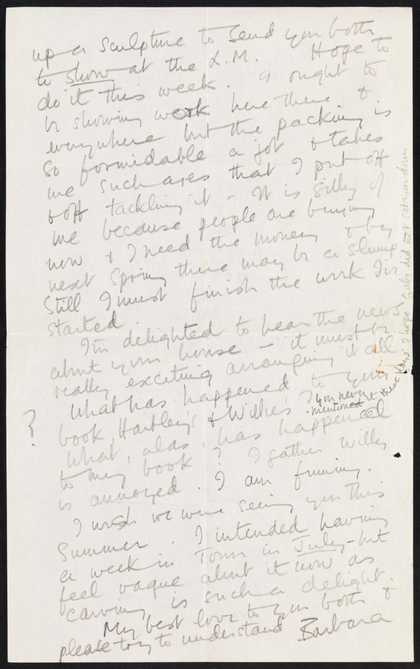 up a sculpture to send you both
to show at the L.M. Hope to
do it this week. I ought to
be showing work here there &
everywhere but the packing is
so formidable a job & takes
me such ages that I put off
& off tackling it – It is silly of
me because people are buying
now & I need the money & by
next Spring there may be a slump
Still I must finish the work I've
started.
I'm delighted to hear the news
about your house – it must be
really exciting arranging it all
? What has happened to your
book, Hartley's & Willies? You never
mentioned it
What, alas, has happened
to my book? I gather Willey
is annoyed. I am fuming.
I wish we were seeing you this
Summer. I intended having
a week in Town in July – but
feel vague about it now as
carving is such a delight.
My best love to you both &
please try to understand Barbara